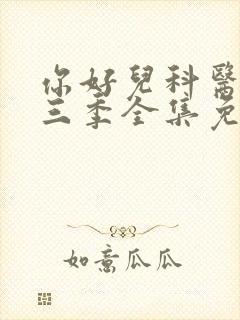 你好兒科醫
三季全集免
如意瓜瓜